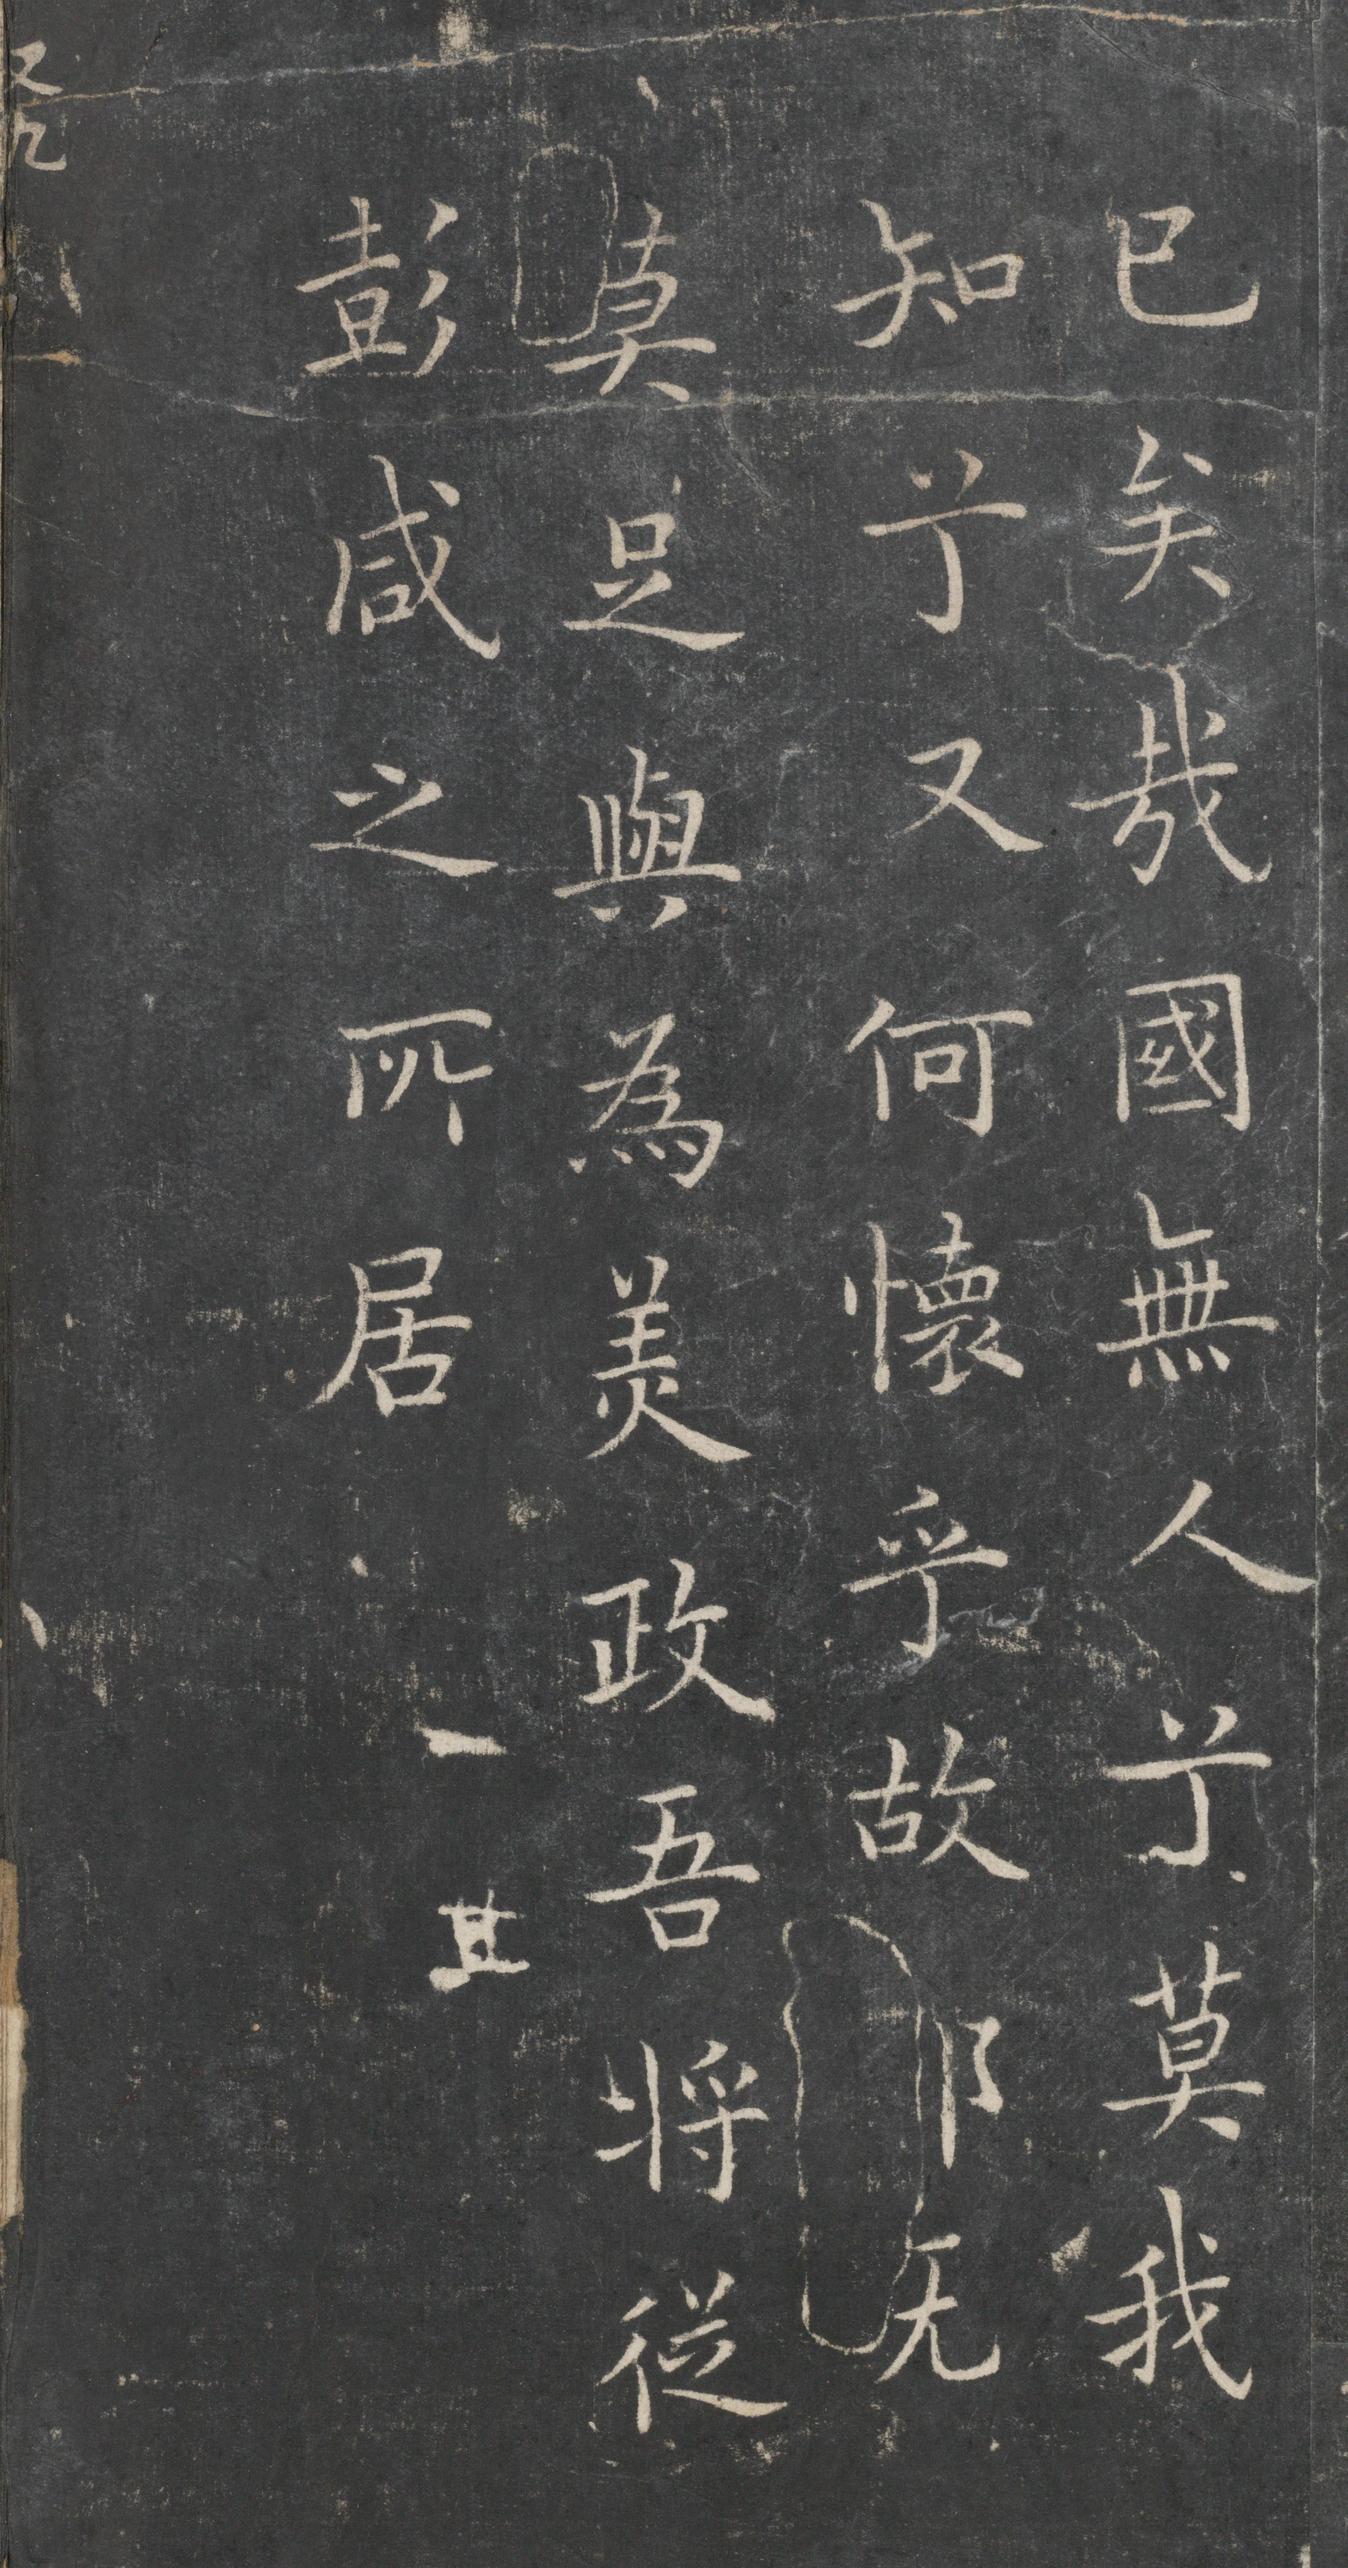 已矣哉國無人兮莫我
知兮又何懷乎故
莫足與為美政吾將從
彭咸之所居